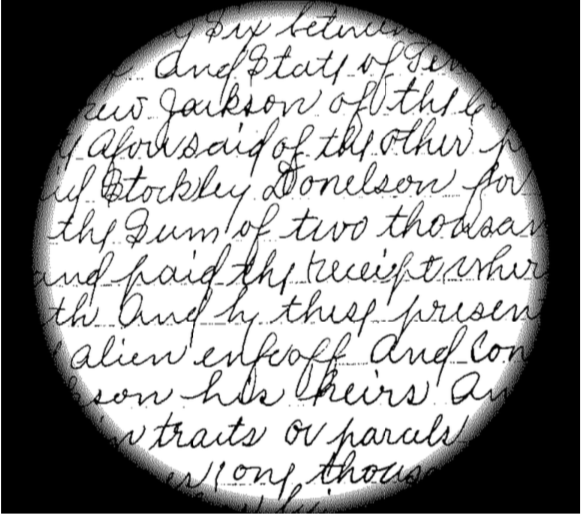 y Six between
and State of Ten
rew Jackson of the Co
y aforesaid of the other p
id Stockley Donelson for
the Sum of two thousan
and paid the receipt wher
th And by these presen
alien enfeoff and Con
kson his heirs An
in tracts or parcels
one thousa